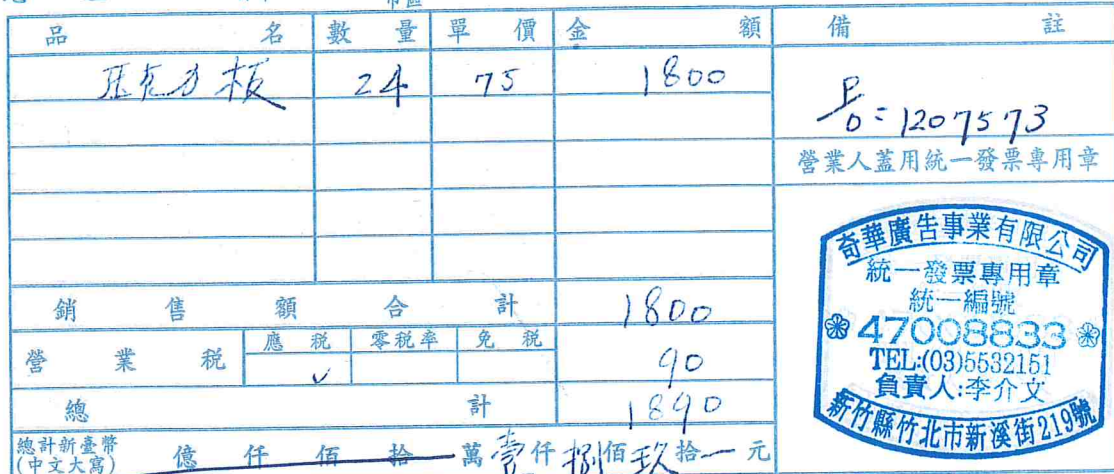 品名 數量 單價 金額 備註
压克力板 24 75 1800
P.O=1207573
營業人蓋用統一發票專用章
銷售額合計 1800
營業稅 應稅 ✓ 零稅率 免稅 90
總計 1890
總計新臺幣(中文大寫) 億 仟 佰 拾 萬 壹 仟 捌 佰 玖 拾 一 元
奇華廣告事業有限公司
統一發票專用章
統一編號
47008833
TEL:(03)5532151
負責人:李介文
新竹縣竹北市新溪街219號